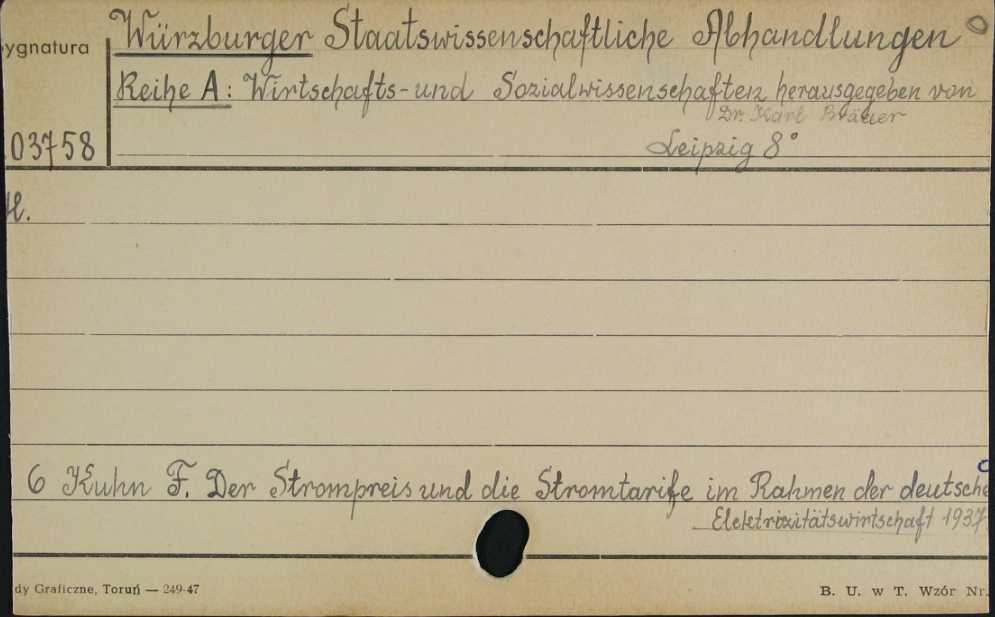 Würzburger Staatswissenschaftliche Abhandlungen
ygnatura
Reihe A: Wirtschafts- und Sozialwissenschaften herausgegeben von
Dr. Karl Bräuer
03758
Leipzig 8°
H.
6 Kuhn F. Der Strompreis und die Stromtarife im Rahmen der deutsche
Elektrizitätswirtschaft 1937
dy Graficzne, Toruń — 249-47
B. U. w T. Wzór Nr.